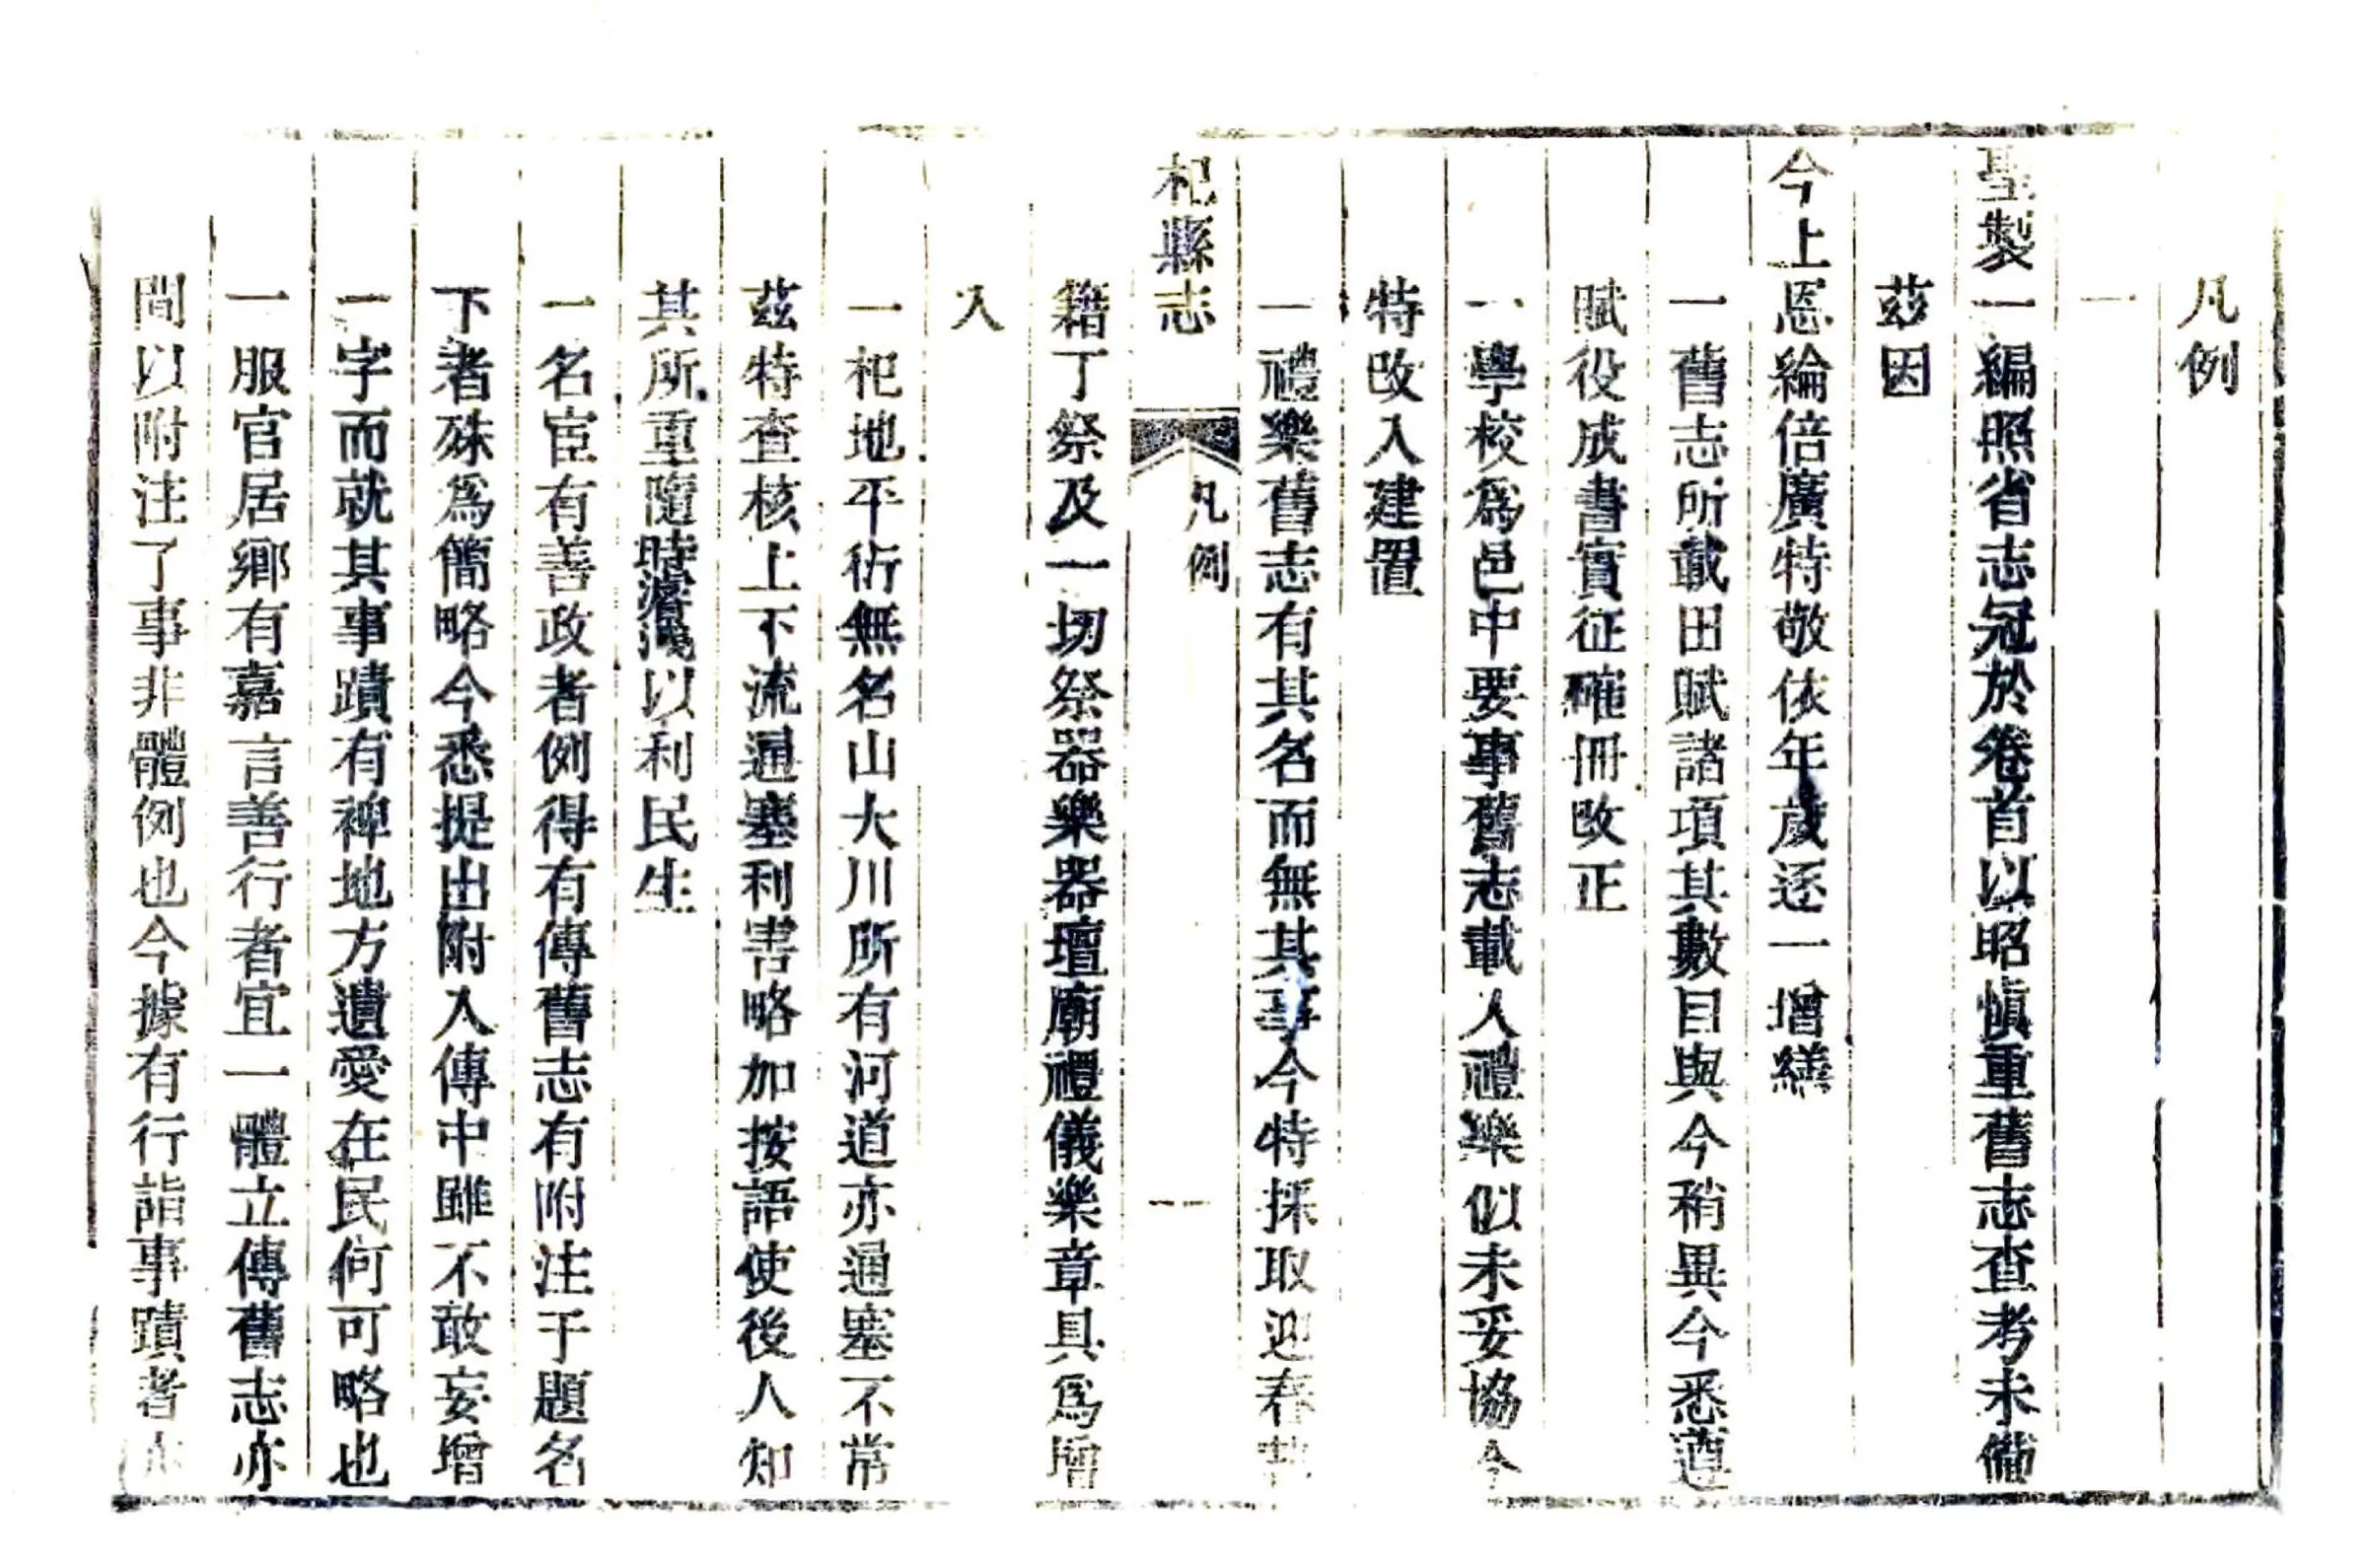 凡例
一
聖製一編照省志冠於卷首以昭慎重舊志查考未備
茲因
今上恩綸倍廣特敬依年歲逐一增繕
一舊志所載田賦諸項其數目與今稍異今悉遵
賦役成書實征確冊改正
一學校爲邑中要事舊志載入禮樂似未妥協今
特改入建置
一禮樂舊志有其名而無其事今特採取迎春耕
杞縣志
凡例
一
籍丁祭及一切祭器樂器壇廟禮儀樂章具爲增
入
一杞地平衍無名山大川所有河道亦通塞不常
茲特查核上下流通塞利害略加按語使後人知
其所重隨時濬以利民生
一名宦有善政者例得有傳舊志有附注于題名
下者殊爲簡略今悉提出附入傳中雖不敢妄增
一字而就其事蹟有裨地方遺愛在民何可略也
一服官居鄉有嘉言善行者宜一體立傳舊志亦
間以附注了事非體例也今據有行詣事蹟者亦